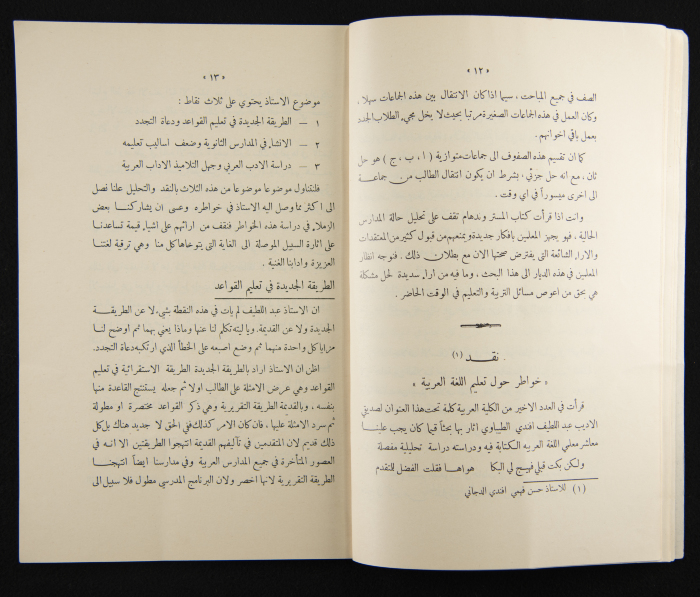 « ١٢ »
الصف في جميع المباحث ، سيما اذا كان الانتقال بين هذه الجماعات سهلا ،
وكان العمل في هذه الجماعات الصغيرة مرتبا بحيث لا يخل مجيء الطلاب الجدد
بعمل باقي اخوانهم .
كما ان تقسيم هذه الصفوف الى جماعات متوازية ( ا ، ب ، ج ) هو حل
ثان ، مع انه حل جزئي ، بشرط ان يكون انتقال الطالب من جماعة
الى اخرى ميسوراً في اي وقت .
وانت اذا قرأت كتاب المستر وندهام تقف على تحليل حالة المدارس
الحالية ، فهو يجهز المعلمين بافكار جديدة ويمنعهم من قبول كثير من المعتقدات
والآراء الشائعة التي يفترض صحتها الآن مع بطلان ذلك . فنوجه انظار
المعلمين في هذه الديار الى هذا البحث ، وما فيه من آراء سديدة لحل مشكلة
هي بحق من اعوص مسائل التربية والتعليم في الوقت الحاضر .
نقد (١)
« خواطر حول تعليم اللغة العربية »
قرأت في العدد الاخير من الكلية العربية كلمة تحت هذا العنوان لصديقي
الاديب عبد اللطيف افندي الطيباوي اثار بها بحثاً قيما كان يجب علينا
معاشر معلمي اللغة العربية الكتابة فيه ودراسته دراسة تحليلية مفصلة
ولكن بكت قبلي فهيج لي البكا هواها فقلت الفضل للمتقدم
(١) للاستاذ حسن فهمي افندي الدجاني
« ١٣ »
موضوع الاستاذ يحتوي على ثلاث نقاط :
١ — الطريقة الجديدة في تعليم القواعد ودعاة التجدد
٢ — الانشاء في المدارس الثانوية وضعف اساليب تعليمه
٣ — دراسة الادب العربي وجهل التلاميذ الآداب العربية
فلنتناول موضوعا موضوعا من هذه الثلاث بالنقد والتحليل علنا نصل
الى اكثر مما وصل اليه الاستاذ في خواطره وعسى ان يشاركنا بعض
الزملاء في دراسة هذه الخواطر فنقف من ارائهم على اشياء قيمة تساعدنا
على انارة السبيل الموصلة الى الغاية التي يتوخاها كل منا وهي ترقية لغتنا
العزيزة وادابنا الغنية .
الطريقة الجديدة في تعليم القواعد
ان الاستاذ عبد اللطيف لم يات في هذه النقطة بشيء لا عن الطريقة
الجديدة ولا عن القديمة. ويا ليته تكلم لنا عنها وماذا يعني بهما ثم اوضح لنا
مزايا كل واحدة منهما ثم وضع اصبعه على الخطأ الذي ارتكبه دعاة التجدد.
اظن ان الاستاذ اراد بالطريقة الجديدة الطريقة الاستقرائية في تعليم
القواعد وهي عرض الامثلة على الطالب اولا ثم جعله يستنتج القاعدة منها
بنفسه ، وبالقديمة الطريقة التقريرية وهي ذكر القواعد مختصرة او مطولة
ثم سرد الامثلة عليها ، فان كان الامر كذلك ففي الحق لا جديد هناك بل كل
ذلك قديم لان المتقدمين في تآليفهم القديمة انتهجوا الطريقتين الا انه في
العصور المتأخرة في جميع المدارس العربية وفي مدارسنا ايضاً انتهجنا
الطريقة التقريرية لانها اخصر ولان البرنامج المدرسي مطول فلا سبيل الى